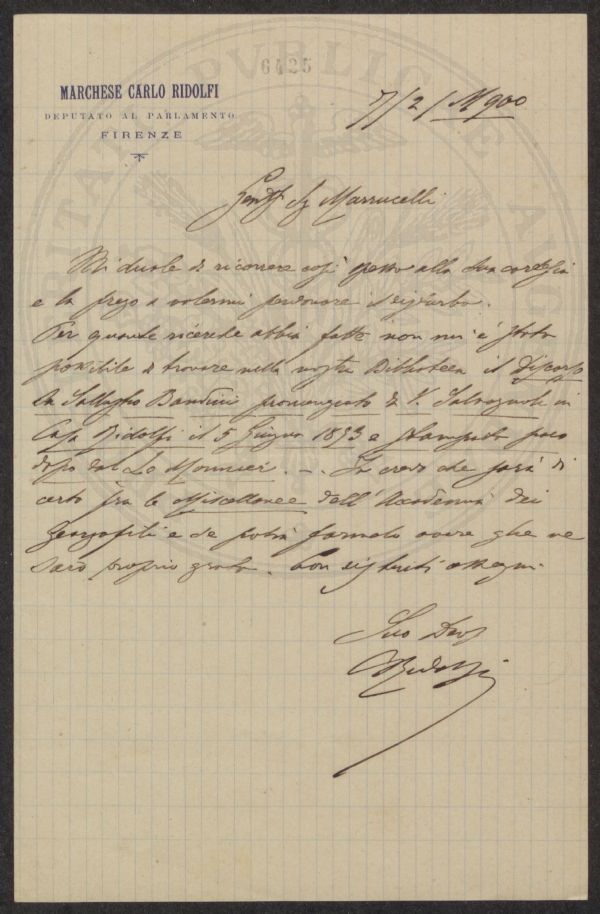 6425
MARCHESE CARLO RIDOLFI
DEPUTATO AL PARLAMENTO
FIRENZE
7/2/M900
Sig Marrucelli
Mi duole di ricorrere così spesso alla sua cortesia
e la prego a volermi perdonare il disturbo.
Per quante ricerche abbia fatte non mi è stato
possibile di trovare nella nostra Biblioteca il Discorso
in Sallustio Bandini pronunziato da V. Salvagnoli in
Casa Ridolfi il 5 Giugno 1853 e stampato poco
dopo dal Le Monnier. -. Io credo che sarà di
certo fra le Miscellanee dell'Accademia dei
Georgofili e se potrò farmelo avere gliene
sarò proprio grato. Con distinti ossequi
Suo Dev
CRidolfi